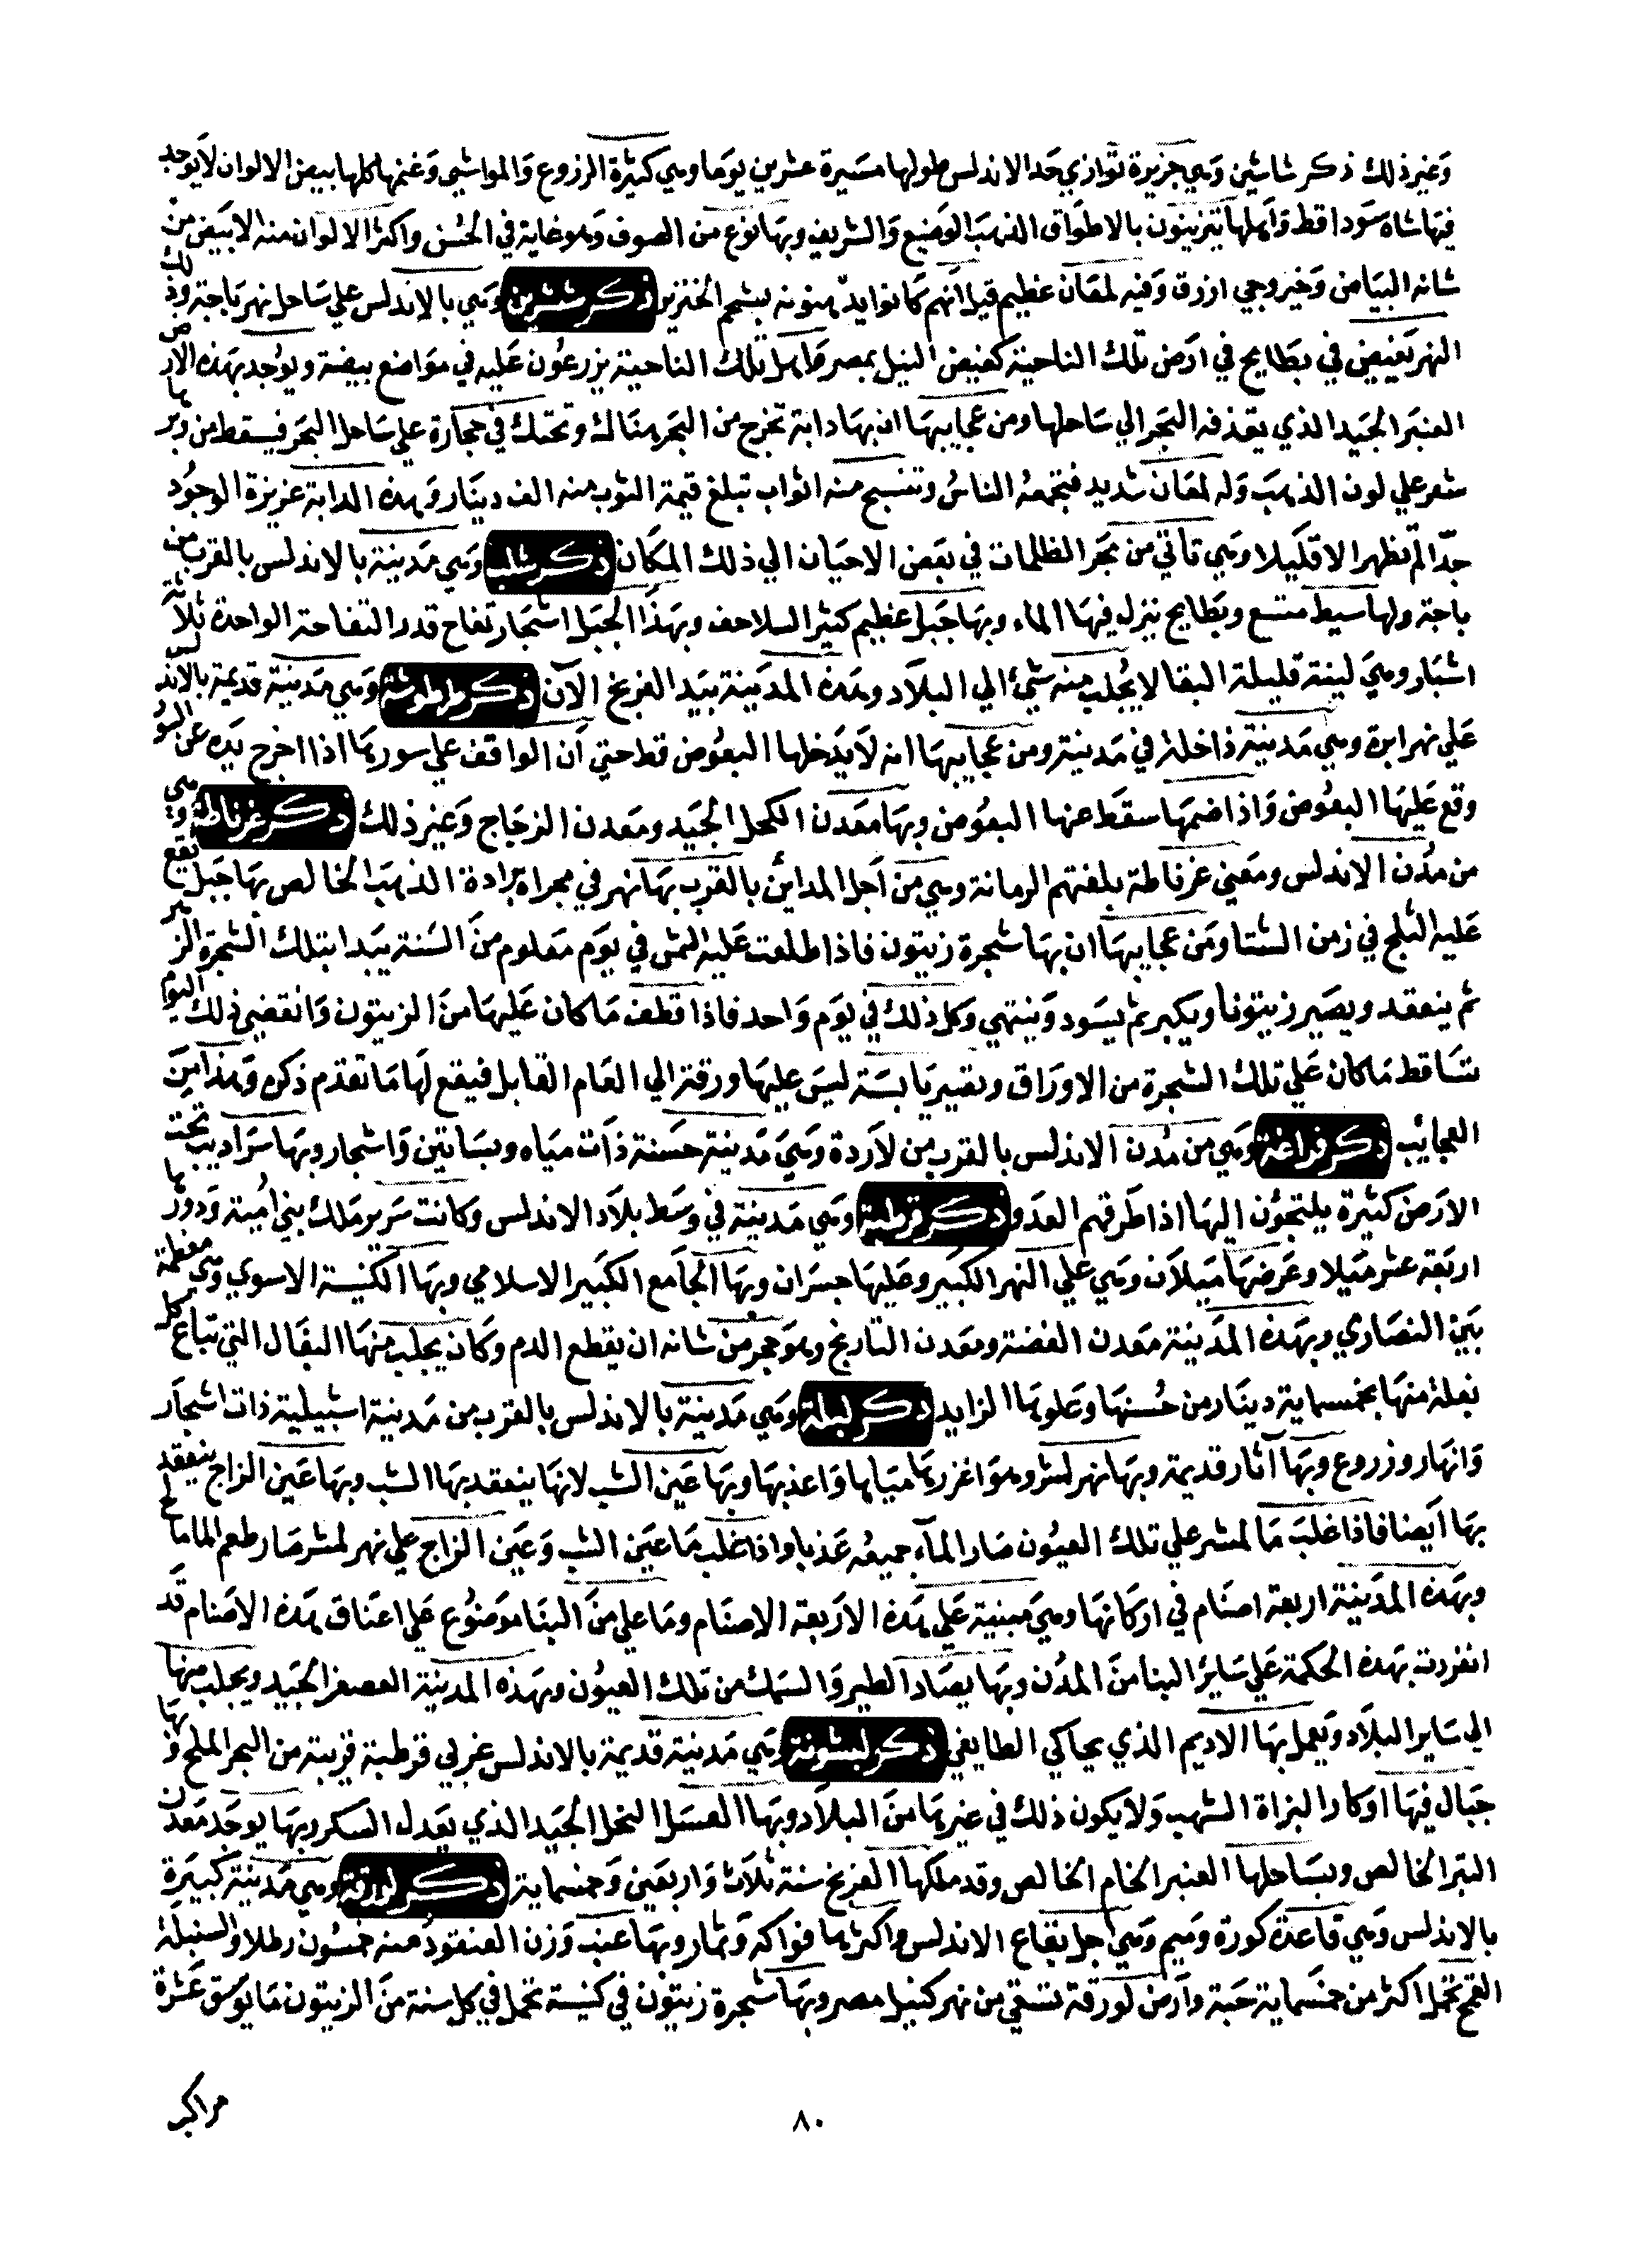 وَغير ذلك ذكر شاشين وَهي جزيرة تُوازي حَد الاندلس طولها مسَيرة عشرين يوَما وهي كثيرة الزروع وَالمواشي وَغنمها كلها بيض الالوان لاَيوَجد
فيهَا شاة سَودا قط وَاهلها يتزينوُن بالاطوَاق الذهبَ الوَضيع وَالشريف وبهَا نوَع من الصوف وَهو غاية في الحُسْن واكثر الالوان منه الابيَض من
شانه البيَاض وَخيروجي ازرق وَفيه لمعَان عظيم قيل اَنهم كانوا يدّهنونه بشحم الخنزير ذكر شنترين وهَي بالاندلس علي سَاحل نهر باجة وذلك
النهر يَفيض في بطَايح في ارَض تلك الناحية كفيض النيل بمصر وَاهل تلك الناحية يزرعُون عَليه في موَاضع بيضة ويوُجد بهَذه الارض
العنبَر الجيَد الذي يقذفه البحَر الي سَاحلها ومن عجايبهَا ان بهَا دابة تخرج من البحَر هنَاك وتحتك في حجارة علي سَاحل البحَر فيسقط من وَبرها
شعر علي لون الذهبَ وَله لمعَان شديد فتجمعه الناسُ وتنسج منه اثواب تبلغ قيمة الثوب منه الف دينَار وَهذه الدابة عزيزة الوجوُد
جدّا لم تظهر الا قلَيلا وهَي تاَتي من بحَر الظلمات في بعَض الاحيَان الي ذلك المكاَن ذكر شلب وَهي مَدينة بالاندلس بالقرب من
باجة ولها سيط متسع وبطَايح ينزل فيهَا الماء وبهَا جبَل عظيم كثير السلاحف وبهَذا الجبَل اشجَار تفاح قدر التفاحة الواحدة ثلاثَة
اشبَار وهيَ لينة قليلة البقا لايجُلب منه شَيْ الي البلاَد وهَذه المدَينة بيَد الفرنج الآن ذكر طرطوشة وَهي مَدينة قديمَة بالاندلس
عَلي نهر ابرة وهي مَدينة داخلة في مَدينة ومن عجايبهَا انه لاَيدَخلها البعوُض قط حتي اَن الواقف علي سورهَا اذا اخرج يَده عن السُور
وقع عَليهَا البعوُض وَاذا ضمهَا سقَط عنها البعوُض وبهَا معَدن الكحل الجَيد ومعَدن الزجَاج وَغير ذلك ذكر غرناطة وَهي
من مدُن الاندلس ومعَني غرناطة بلغتهم الرمانة وهيَ من اَجل المداين بالقَرب بهَا نهر في مجراه برادة الذهبَ الخالص بهَا جَبل يقع
عَليه الثلج في زمن الشتا ومَن عجايبهَا ان بهَا شجرة زيتون فاذا طلعت عَليه الشمس في يوَم معَلوم منَ السَنة يبَدا بتلك الشجرة الزهر
ثم ينعقد ويصَير زيتونا ويكبر ثم يَسود وَينتهي وَكل ذلك في يوَم وَاحد فاذا قطف مَا كان عَليهَا منَ الزيتون وَانقضي ذلك اليوَم
تتسَاقط مَا كان عَلي تلك الشجرة من الاورَاق وتصَير يابسَة ليسَ عليهَا ورقة الي العَام القابل فيقع لهَا مَا تقدم ذكره وَهذا منَ
العجايَب ذكر فراغة وَهي من مُدن الاندلس بالقرب من لاَردة وَهيَ مَدينة حسَنة ذَات ميَاه وبسَاتين وَاشجار وبهَا سرَاديب تحت
الارَض كثيَرة يلتجوُن اليهَا اذا طرَقهم العدَو ذكر قرطبة وهَي مدَينة في وسَط بلاَد الاندلس وكانت سَرير مَلك بني امُية وَدورها
اربَعة عشر مَيلا وعَرضهَا ميَلاَن وهَي عَلي النهر الكبَير وعَليهَا جسرَان وبهَا الجاَمع الكبَير الاسلامي وبهَا الكنيسَة الاسوي وهَي معظمة
بيَن النصَاري وبهَذه المدَينة معَدن الفضة ومعدَن التاريخ وهوَ حجرُ من شانه ان يقطع الدم وَكان يجلب منهَا البغَال التي تباع كل
بغلة منهَا بخمسماية دينَار من حُسنهَا وعَلوهَا الزايد ذكر لبلة وهَي مَدينة بالاندلس بالقَرب من مدَينة اشبيلية ذات اشجاَر
وَانهَار وزروع وبهَا آثار قديمة وبهَا نهر لشر وهوَ اغزرهَا ميَاها وَاعذبهَا وبهَا عَين الشب لانهَا ينعقد بهَا الشب وبهَا عَين الزاج ينعقد
بهَا ايَضا فاذا غلبَ مَا لمشر علي تلك العيوُن صَار الماَء جميعُه عَذبا واذا غلَب مَا عيَن الشب وَعَين الزاج علي نهر لمشر صَار طعم الما مالح
وبهَذه المدَينة اربعة اصنَام في اركانهَا وهيَ مبنية عَلي هَذه الارَبعة الاصنَام ومَا علي منَ البنَا موَضوُع عَلي اعنَاق هَذه الاصَنام قدَ
انفردت بهَذه الحكمة عَلي سَاير البنا منَ المدُن وبهَا يصَاد الطير وَالسَمك من تلك العيوُن وبهَذه المدَينة العصفر الجيَد ويجلب منها
الي سَاير البلاَد وَيعمل بهَا الاديم الذي يحَاكي الطايفي ذكر لبشونة وهَي مَدينة قدَيمة بالاندلس غربي قرطبة قريبَة من البحر المَلح وَبها
جبَال فيهَا اوكار البزاة الشهب وَلايكون ذلك في غيرهَا منَ البلاَد وبهَا العسَل النحل الجيَد الذي يعَدل السكر وبهَا يوجَد معَدن
التبر الخالص وبسَاحلها العنبر الخام الخالص وقد ملكها الفرنج سنة ثلاَث وَاربعَين وَخمسماية ذكر لورقة وهيَ مدَينة كبَيرة
بالاندلس وَهي قاعدَة كورة وَهي اجل بقاع الاندلس واكثرهَا فواكه وَثمار وبهَا عنب وَزن العنقود منه خمسُون رطلا والسنبلَة
القمح تحمَل اكثر من خمسَماية حَبة وارَض لوَرقة تسقي من نهر كنيل مصر وبهَا شجرة زيتوُن في كنيسة تحمل في كل سنة منَ الزيتون مَا يوسَق عَشرة
مراكب
٨٠